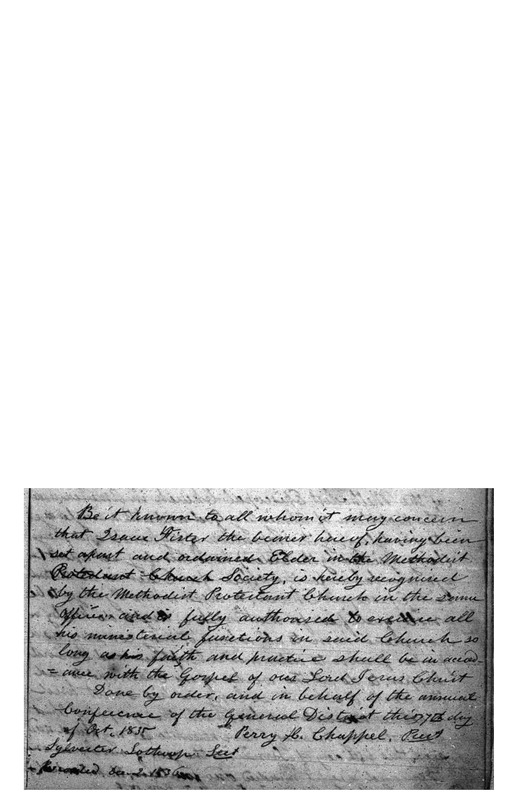 Be it known to all whom it may concern
that Isaac Fister the bearer hereof, having been
set apart and ordained Elder in the Methodist
Protestant Church Society, is hereby recognised
by the Methodist Protestant Church in the same
office and is fully authorised to exercise all
his ministerial functions in said Church so
long as his faith and practice shall be in accord=
=ance with the Gospel of our Lord Jesus Christ
Done by order, and in behalf of the annual
Conference of the General Dist at the 7th day
of Oct. 1835 Perry H. Chappel, Prest
Sylvester Lothrop Sect
Recorded Dec. 2. 1836